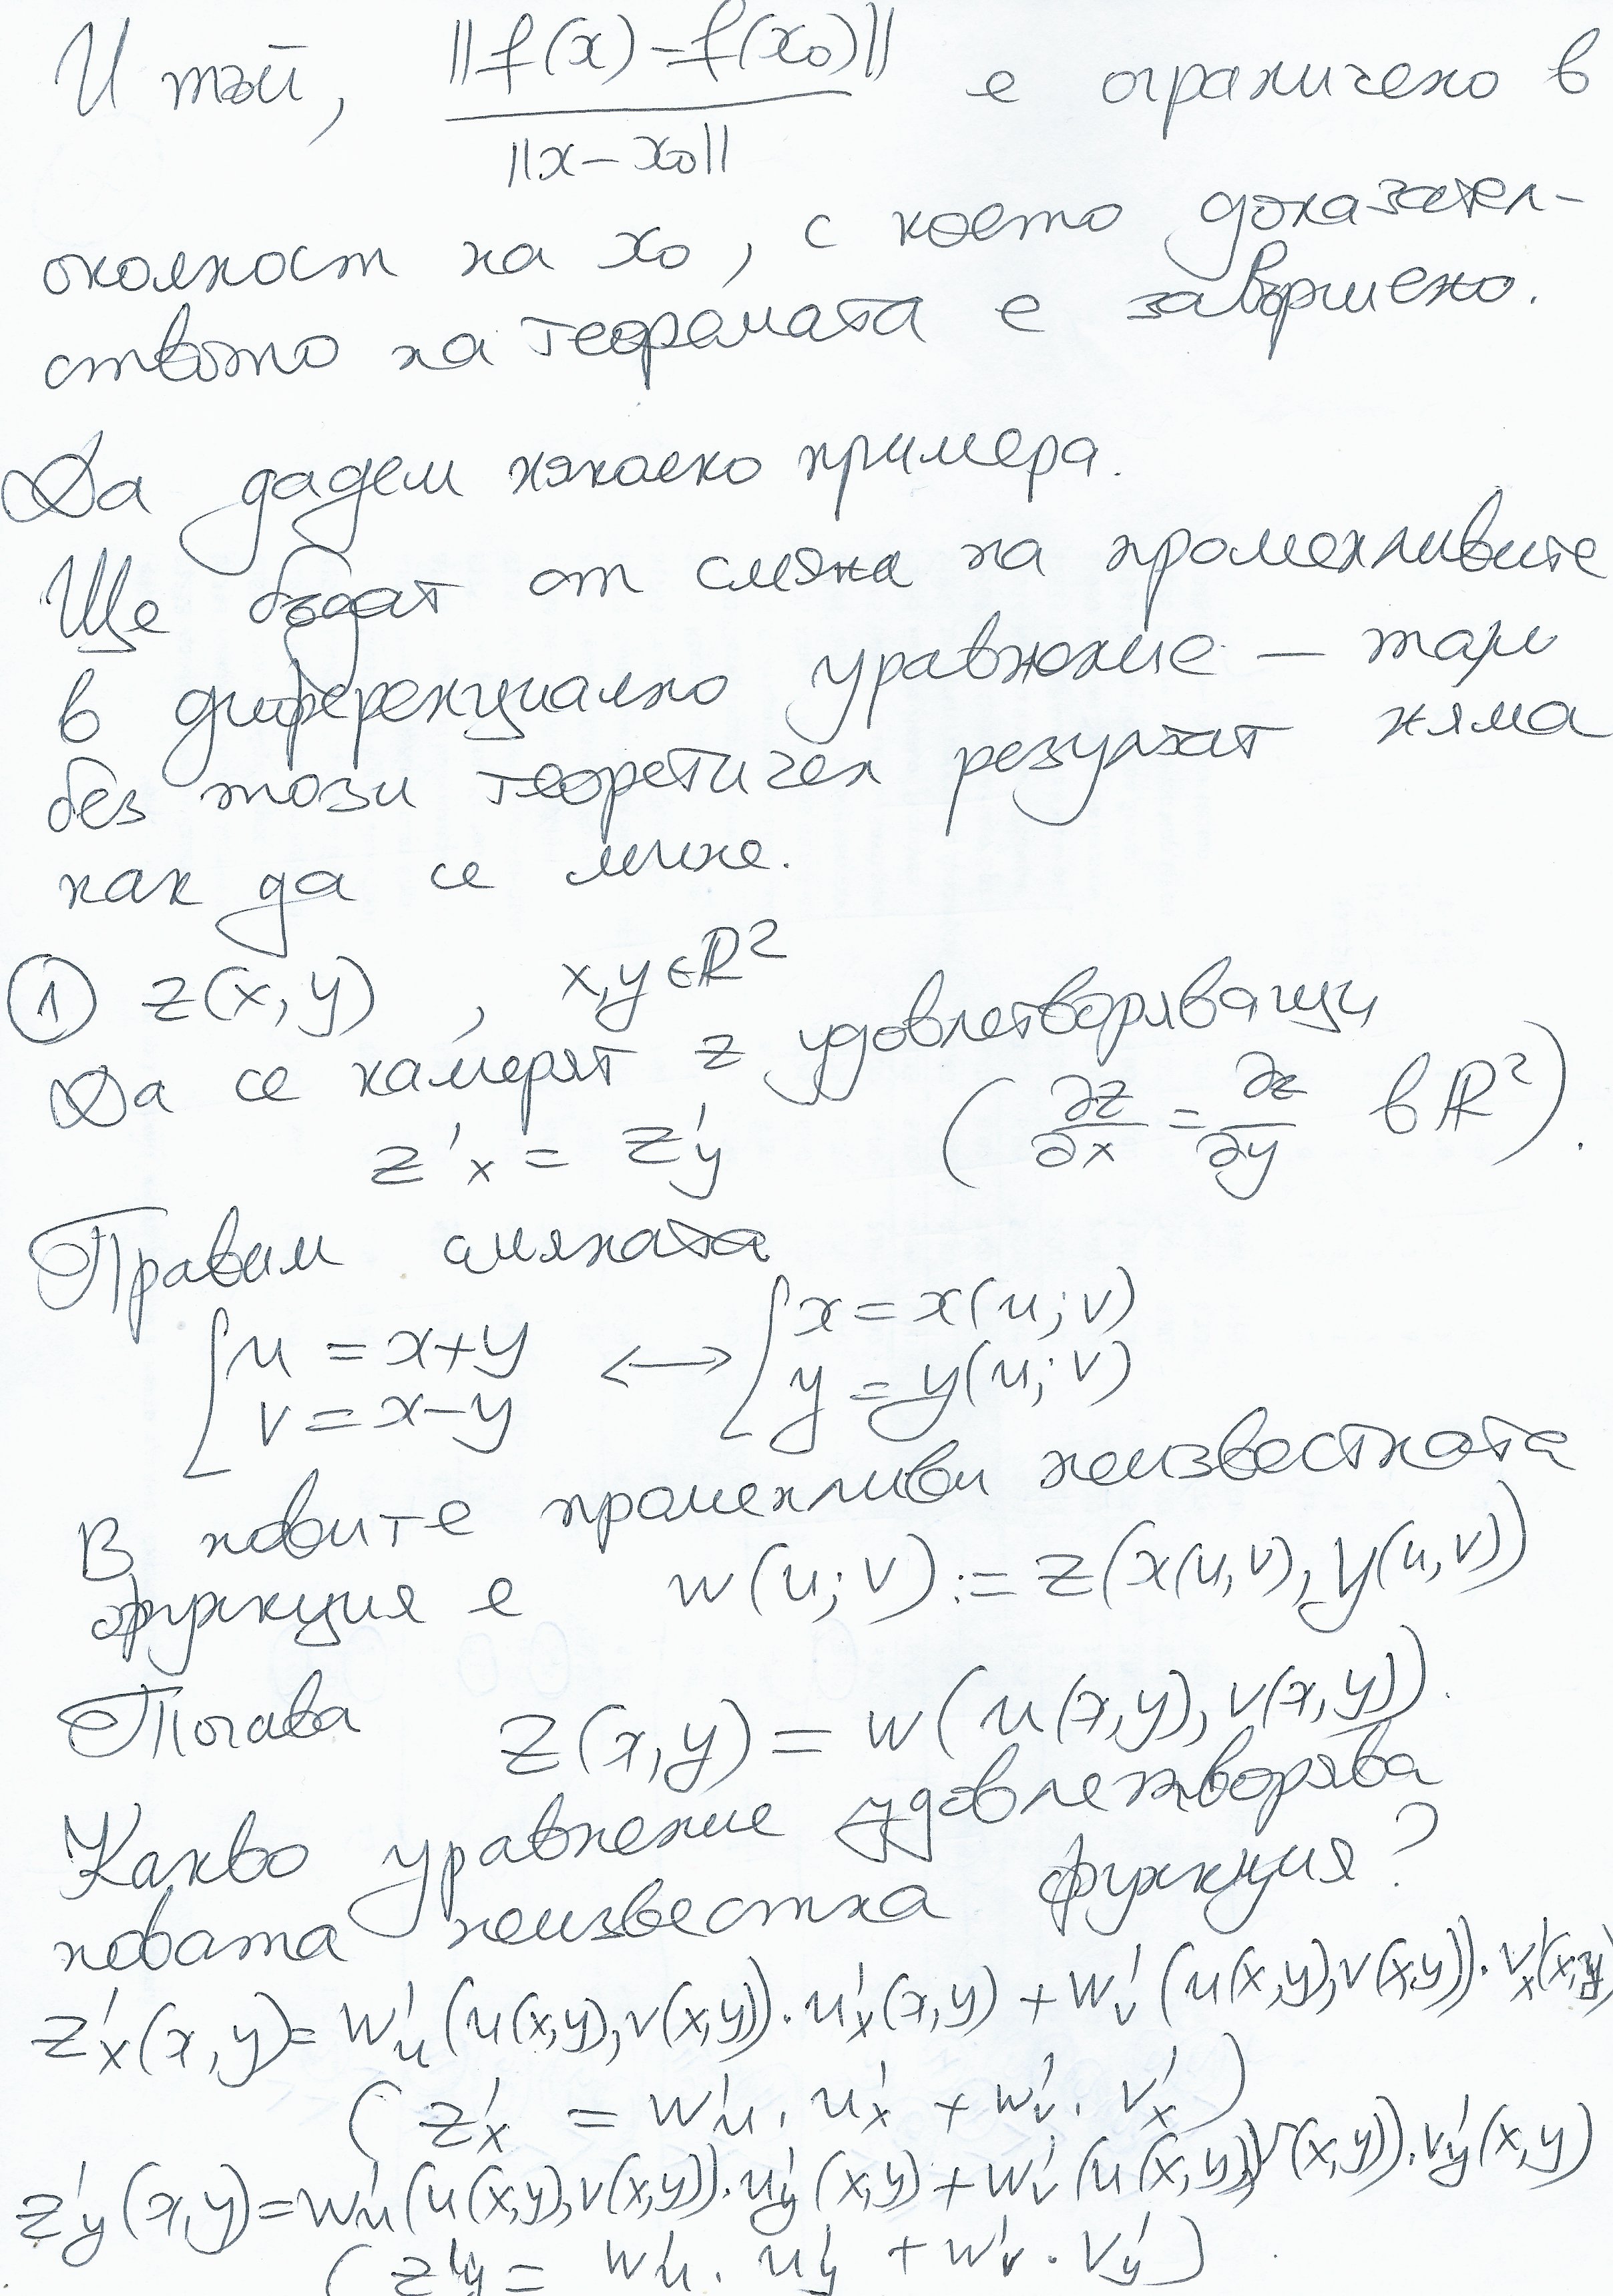 И тъй, ||f(x)-f(x₀)|| / ||x-x₀|| е ограничено в
околност на x₀, с което доказател-
ството на теоремата е завършено.
Да дадем няколко примера.
Ще бъдат от смяна на променливите
в диференциално уравнение — там
без този теоретичен резултат няма
как да се мине.
① z(x, y) , x,y∈ℝ²
Да се намерят z удовлетворяващи
z'ₓ = z'_y (∂z/∂x = ∂z/∂y в ℝ²).
Правим смяната
{ u = x+y ⟷ { x = x(u; v)
v = x-y y = y(u; v)
В новите променливи неизвестната
функция е w(u; v) := z(x(u,v), y(u,v))
Тогава z(x,y) = w(u(x,y), v(x,y)).
Какво уравнение удовлетворява
новата неизвестна функция?
z'ₓ(x,y) = w'_u(u(x,y),v(x,y)).u'ₓ(x,y) + w'_v(u(x,y),v(x,y)).v'ₓ(x,y)
(z'ₓ = w'_u . u'ₓ + w'_v . v'ₓ)
z'_y(x,y) = w'_u(u(x,y),v(x,y)).u'_y(x,y) + w'_v(u(x,y),v(x,y)).v'_y(x,y)
(z'_y = w'_u . u'_y + w'_v . v'_y)